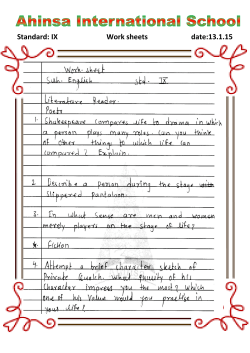 Ahinsa International School
Standard: IX Work sheets date:13.1.15
Work sheet
Sub- English std- IX
Literature Reader.
Poetr
1. Shakespeare compares life to drama in which
a person plays many roles. Can you think
of other things to which life can
compared? Explain.
2. Describe a person during the stage
slippered pantaloon.
3. In what sense are men and women
merely players on the stage of life?
* Fiction
4. Attempt a brief character sketch of
Private Quelch. What quality of his
character impress you the most? Which
one of his value would you practise in
your life?